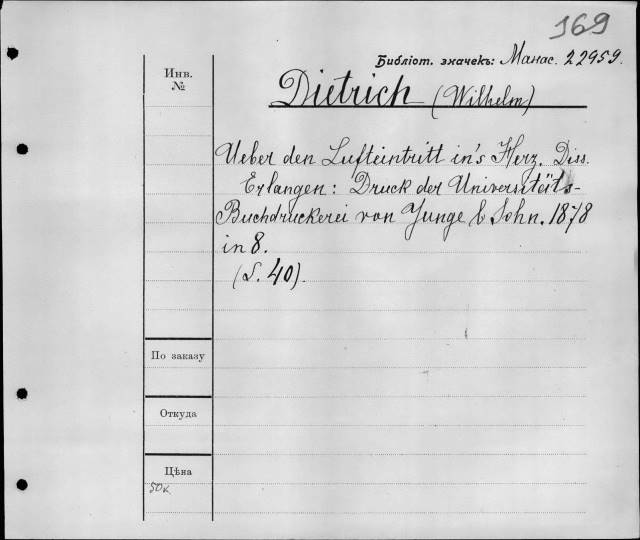 169
Библіот. значекъ: Манас. 22959.
Инв.
№
Dietrich (Wilhelm)
Ueber den Lufteintritt in's Herz. Diss.
Erlangen: Druck der Universitäts-
Buchdruckerei von Junge & Sohn. 1878
in 8.
(S. 40).
По заказу
Откуда
Цѣна
50к